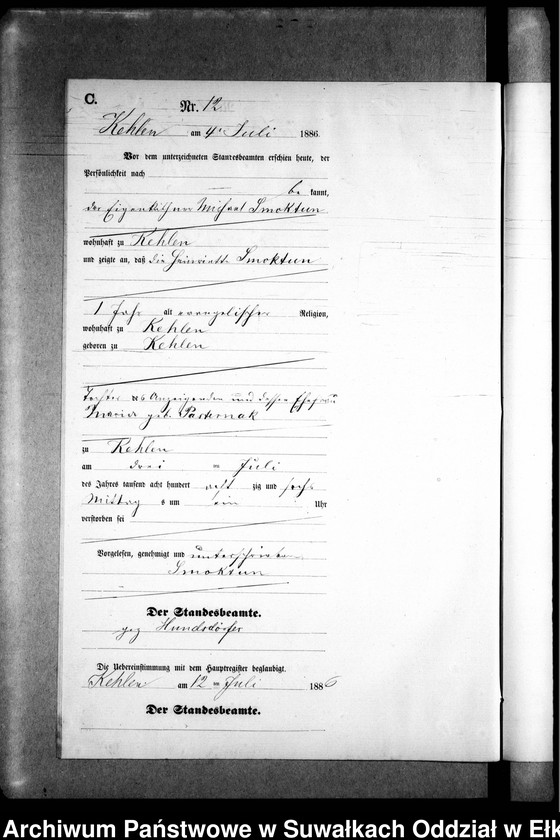 C.
Nr. 12
Kehlen am 4. Juli 1886.
Vor dem unterzeichneten Standesbeamten erschien heute, der
Persönlichkeit nach
be kannt,
der Eigenkäthner Michael Smoktun
wohnhaft zu Kehlen
und zeigte an, daß die Henriette Smoktun
1 Jahr alt evangelischer Religion,
wohnhaft zu Kehlen
geboren zu Kehlen
Tochter des Anzeigenden und dessen Ehefrau
Maria geb. Pasternak
zu Kehlen
am drei = Juli
des Jahres tausend acht hundert acht zig und sechs
Mittag s um ein Uhr
verstorben sei
Vorgelesen, genehmigt und unterschrieben
Smoktun
Der Standesbeamte.
gez Hundsdörfer
Die Uebereinstimmung mit dem Hauptregister beglaubigt.
Kehlen am 12 = Juli 1886
Der Standesbeamte.
Archiwum Państwowe w Suwałkach Oddział w Ełk